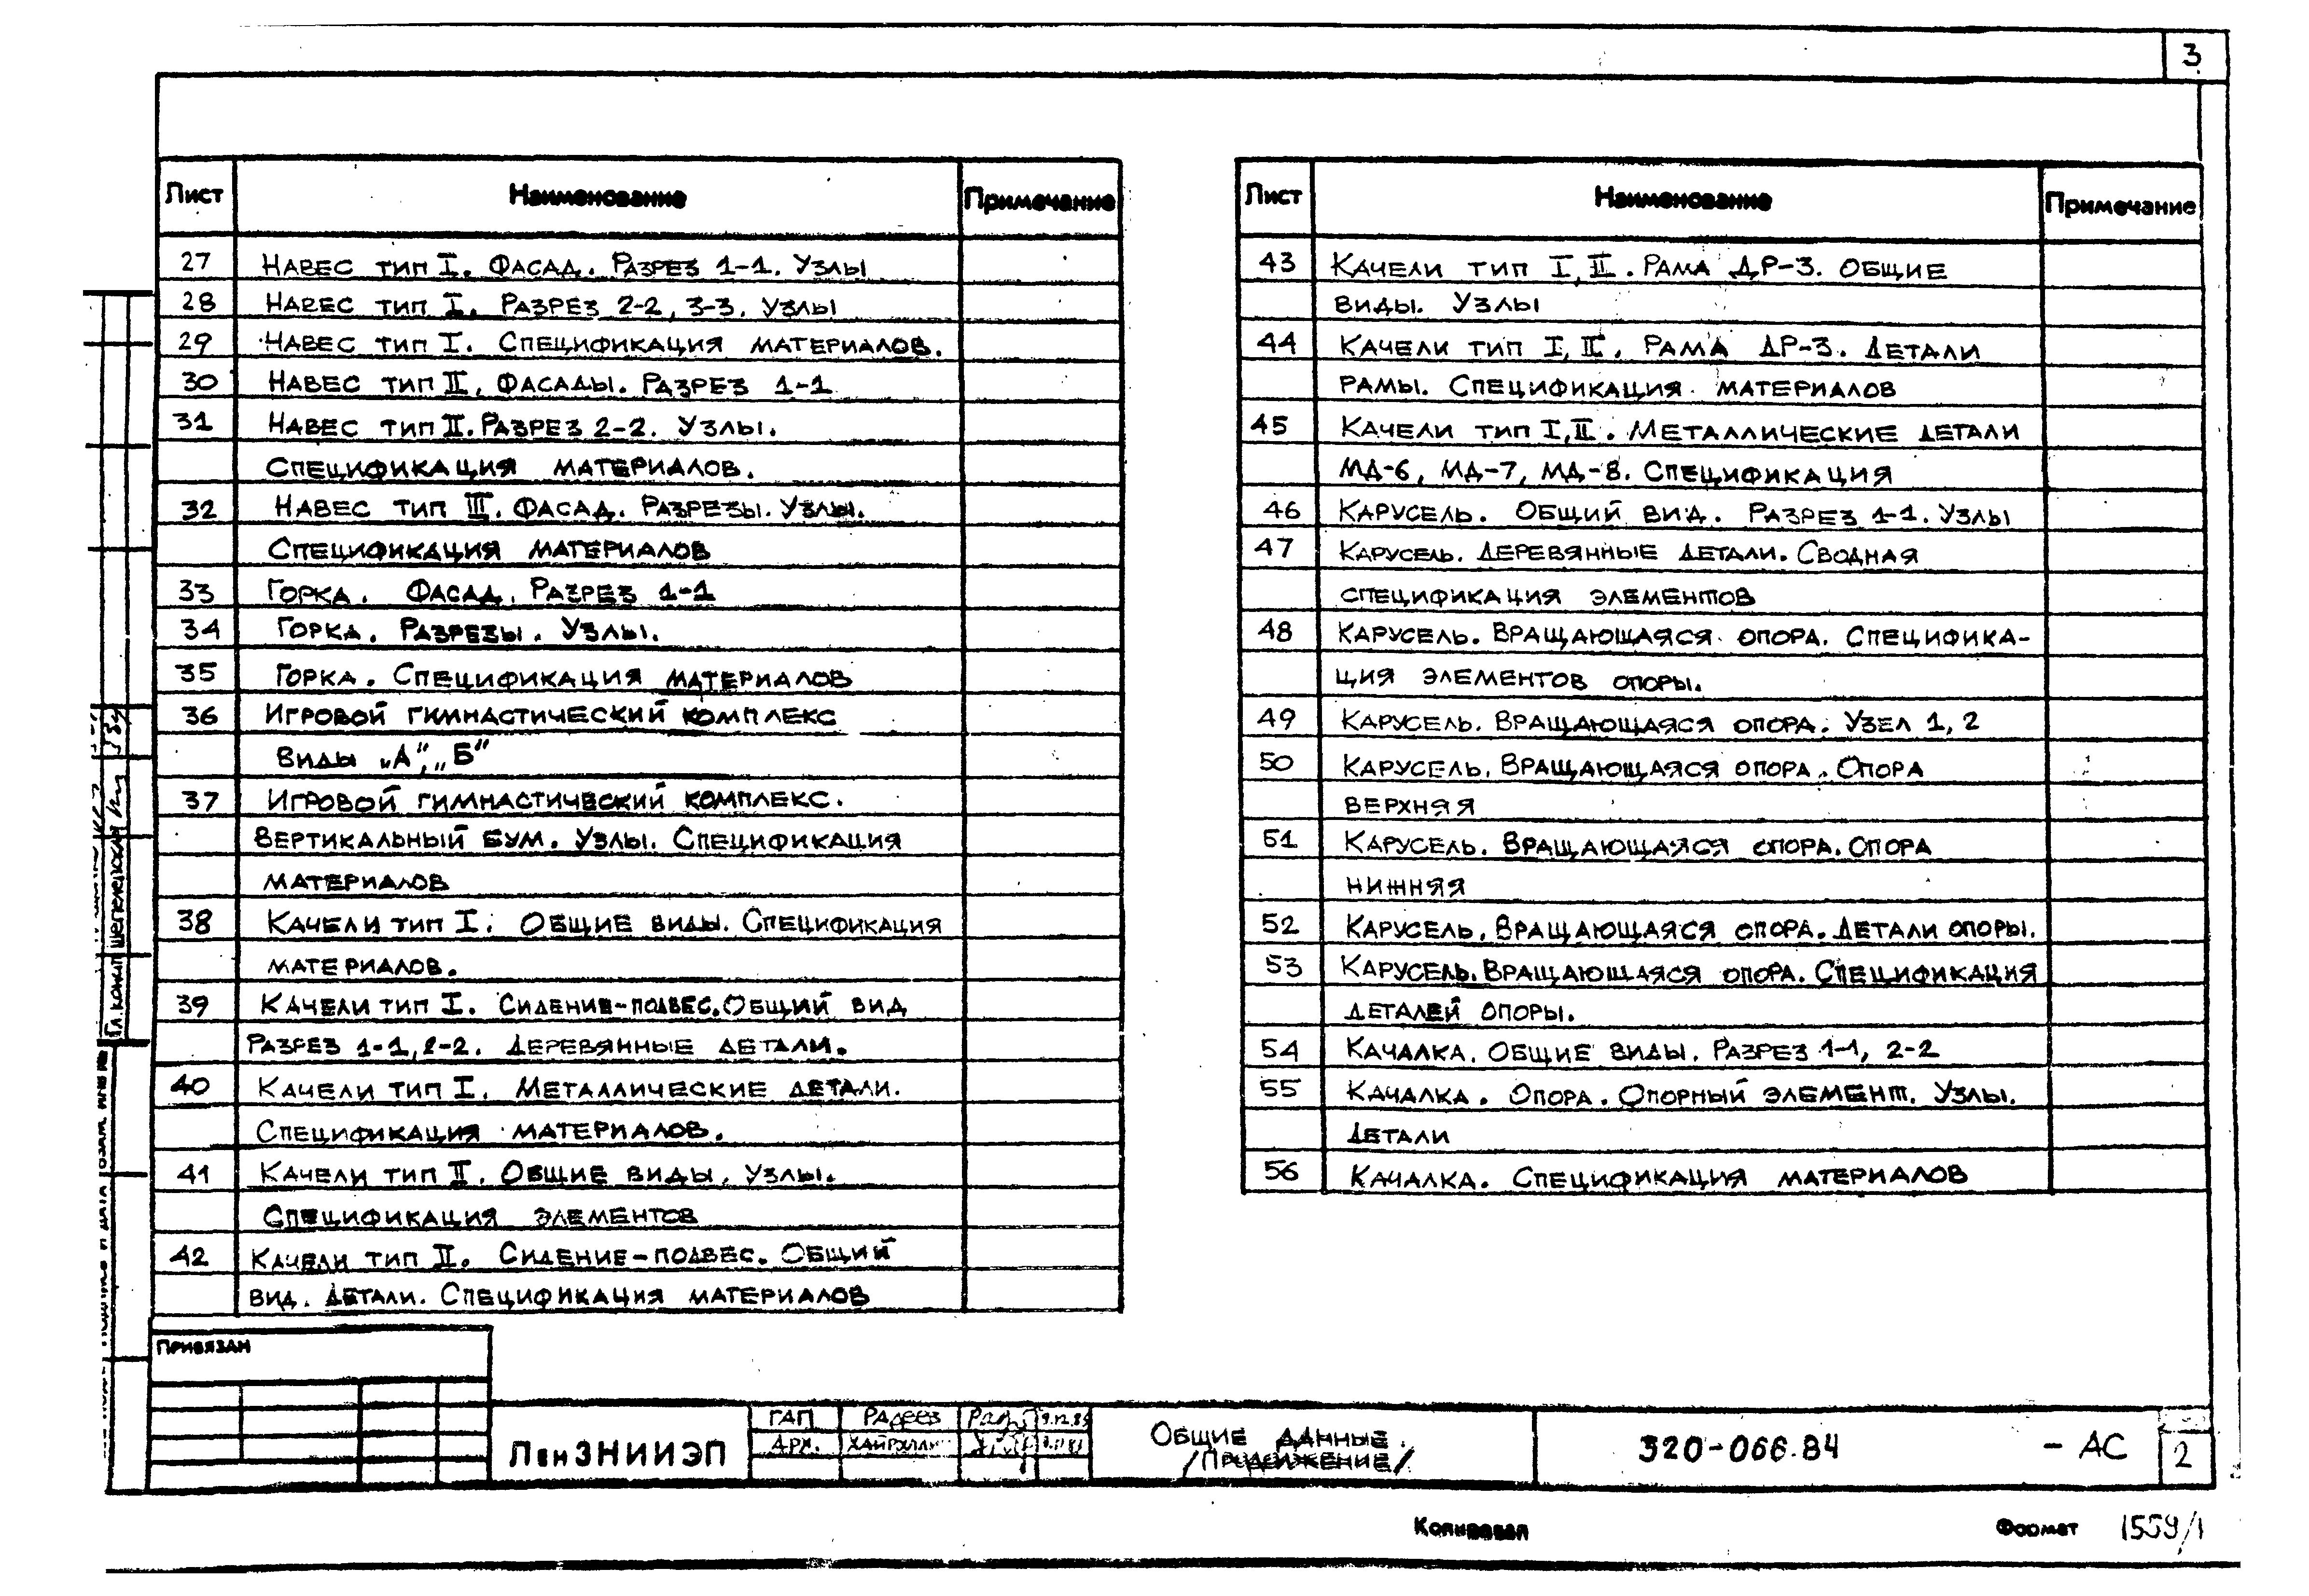 3
Лист Наименование Примечание
27 Навес тип I. Фасад. Разрез 1-1. Узлы
28 Навес тип I. Разрез 2-2, 3-3. Узлы
29 Навес тип I. Спецификация материалов.
30 Навес тип II, Фасады. Разрез 1-1
31 Навес тип II. Разрез 2-2. Узлы.
Спецификация материалов.
32 Навес тип III. Фасад. Разрезы. Узлы.
Спецификация материалов
33 Горка. Фасад. Разрез 1-1
34 Горка. Разрезы. Узлы.
35 Горка. Спецификация материалов
36 Игровой гимнастический комплекс
Виды „А“, „Б“
37 Игровой гимнастический комплекс.
Вертикальный бум. Узлы. Спецификация
материалов
38 Качели тип I. Общие виды. Спецификация
материалов.
39 Качели тип I. Сидение-подвес. Общий вид
Разрез 1-1, 2-2. Деревянные детали.
40 Качели тип I. Металлические детали.
Спецификация материалов.
41 Качели тип II. Общие виды. Узлы.
Спецификация элементов
42 Качели тип II. Сидение-подвес. Общий
вид. Детали. Спецификация материалов
Лист Наименование Примечание
43 Качели тип I, II. Рама ДР-3. Общие
виды. Узлы
44 Качели тип I, II. Рама ДР-3. Детали
рамы. Спецификация материалов
45 Качели тип I, II. Металлические детали
МД-6, МД-7, МД-8. Спецификация
46 Карусель. Общий вид. Разрез 1-1. Узлы
47 Карусель. Деревянные детали. Сводная
спецификация элементов
48 Карусель. Вращающаяся опора. Специфика-
ция элементов опоры.
49 Карусель. Вращающаяся опора. Узел 1, 2
50 Карусель. Вращающаяся опора. Опора
верхняя
51 Карусель. Вращающаяся опора. Опора
нижняя
52 Карусель. Вращающаяся опора. Детали опоры.
53 Карусель. Вращающаяся опора. Спецификация
деталей опоры.
54 Качалка. Общие виды. Разрез 1-1, 2-2
55 Качалка. Опора. Опорный элемент. Узлы.
Детали
56 Качалка. Спецификация материалов
Привязан
ЛенЗНИИЭП
ГАП Радеев
Арх.
Общие данные.
/Продолжение/
320-066.84 - АС 2
Копировал
Формат 1559/1